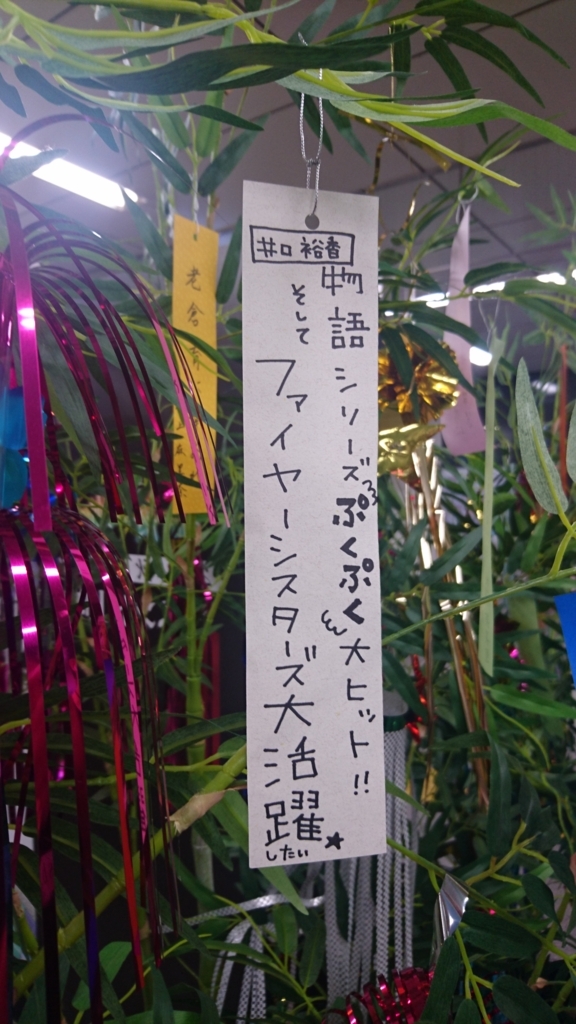 井口裕香
物語シリーズぷくぷく大ヒット!!
そして
ファイヤーシスターズ大活躍
したい★
老倉育